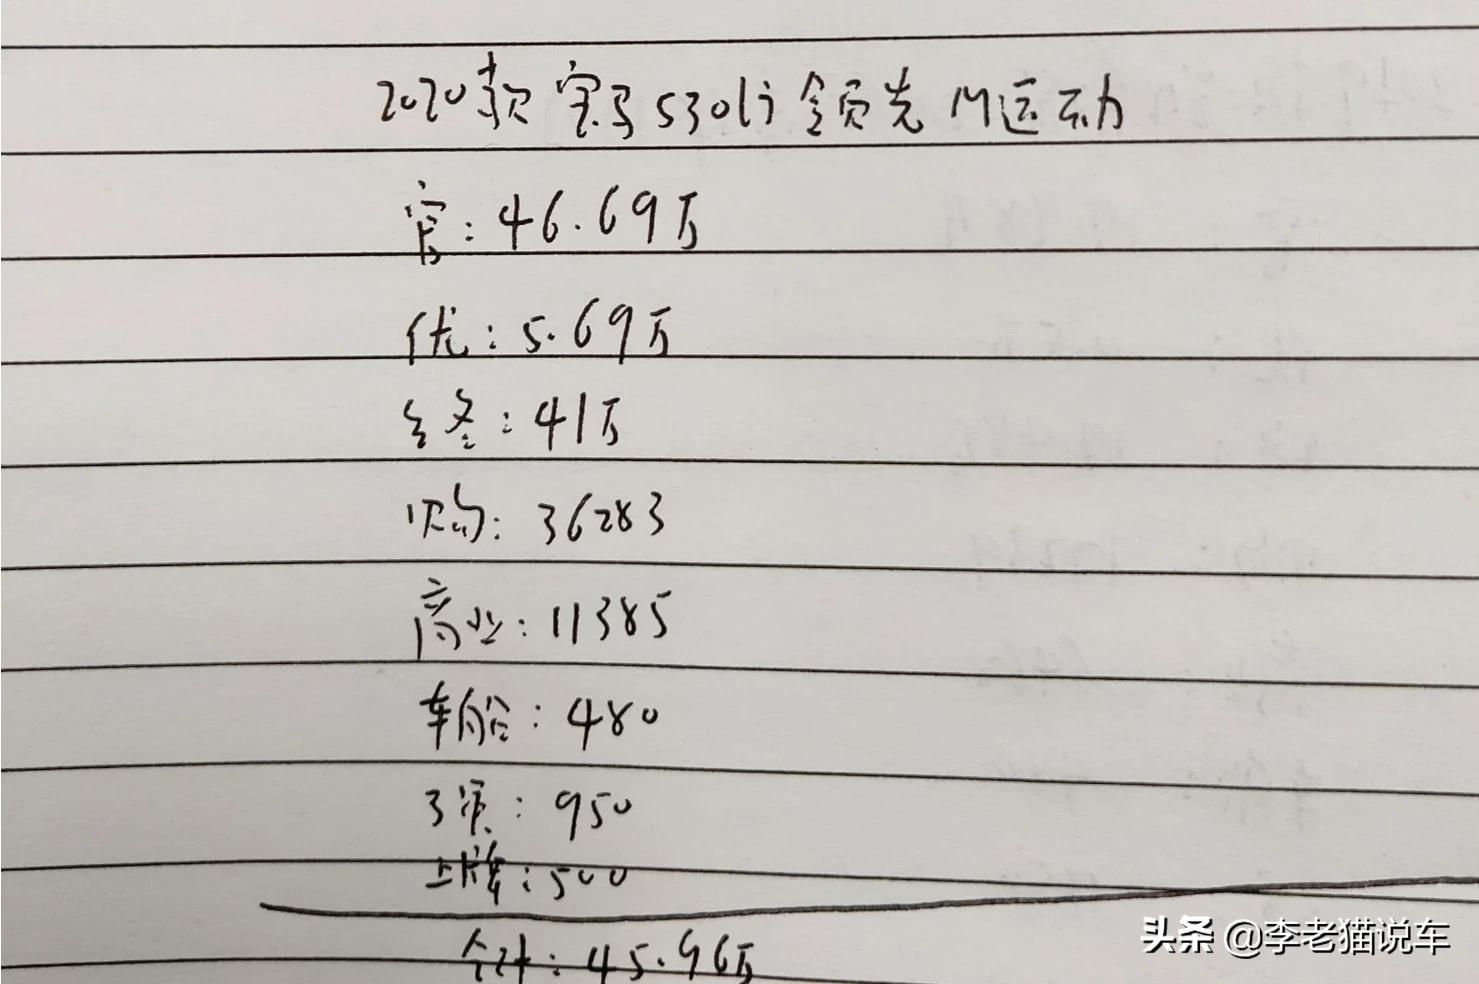 2020款宝马530li领先M运动
官:46.69万
优:5.69万
终:41万
购:36283
商业:11385
车船:480
交强:950
上牌:500
合计:45.96万
头条 @李老猫说车